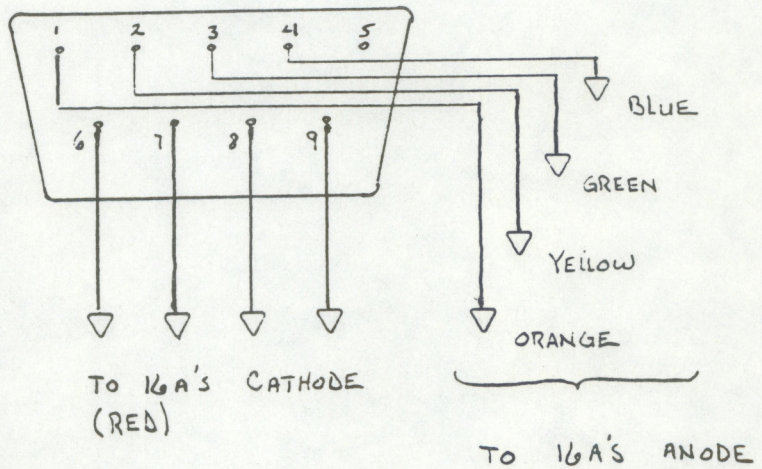 1 2 3 4 5
6 7 8 9
BLUE
GREEN
YEllOW
ORANGE
TO 16A'S CATHODE
(RED)
TO 16A'S ANODE